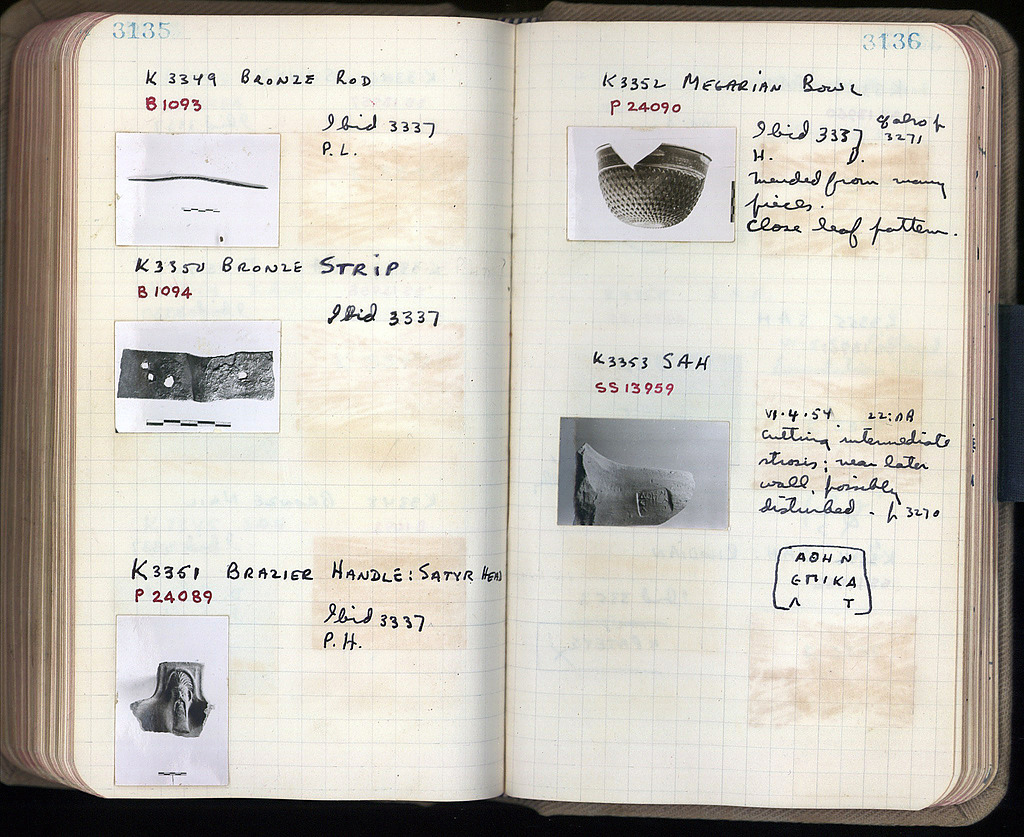 3135
K 3349 BRONZE ROD
B 1093
Ibid 3337
P.L.
K3350 BRONZE STRIP
B 1094
Ibid 3337
K3351 BRAZIER HANDLE: SATYR HEAD
P 24089
Ibid 3337
P.H.
3136
K3352 MEGARIAN BOWL
P 24090
Ibid 3337 cf also p
3271
H. D.
mended from many
pieces.
Close leaf pattern.
K3353 SAH
SS 13959
VI.4.54 22:ΛΒ
cutting intermediate
strosis; near later
wall, possibly
disturbed - p 3270
ΑΘΗΝ
ЄΠΙΚΑ
Λ Τ